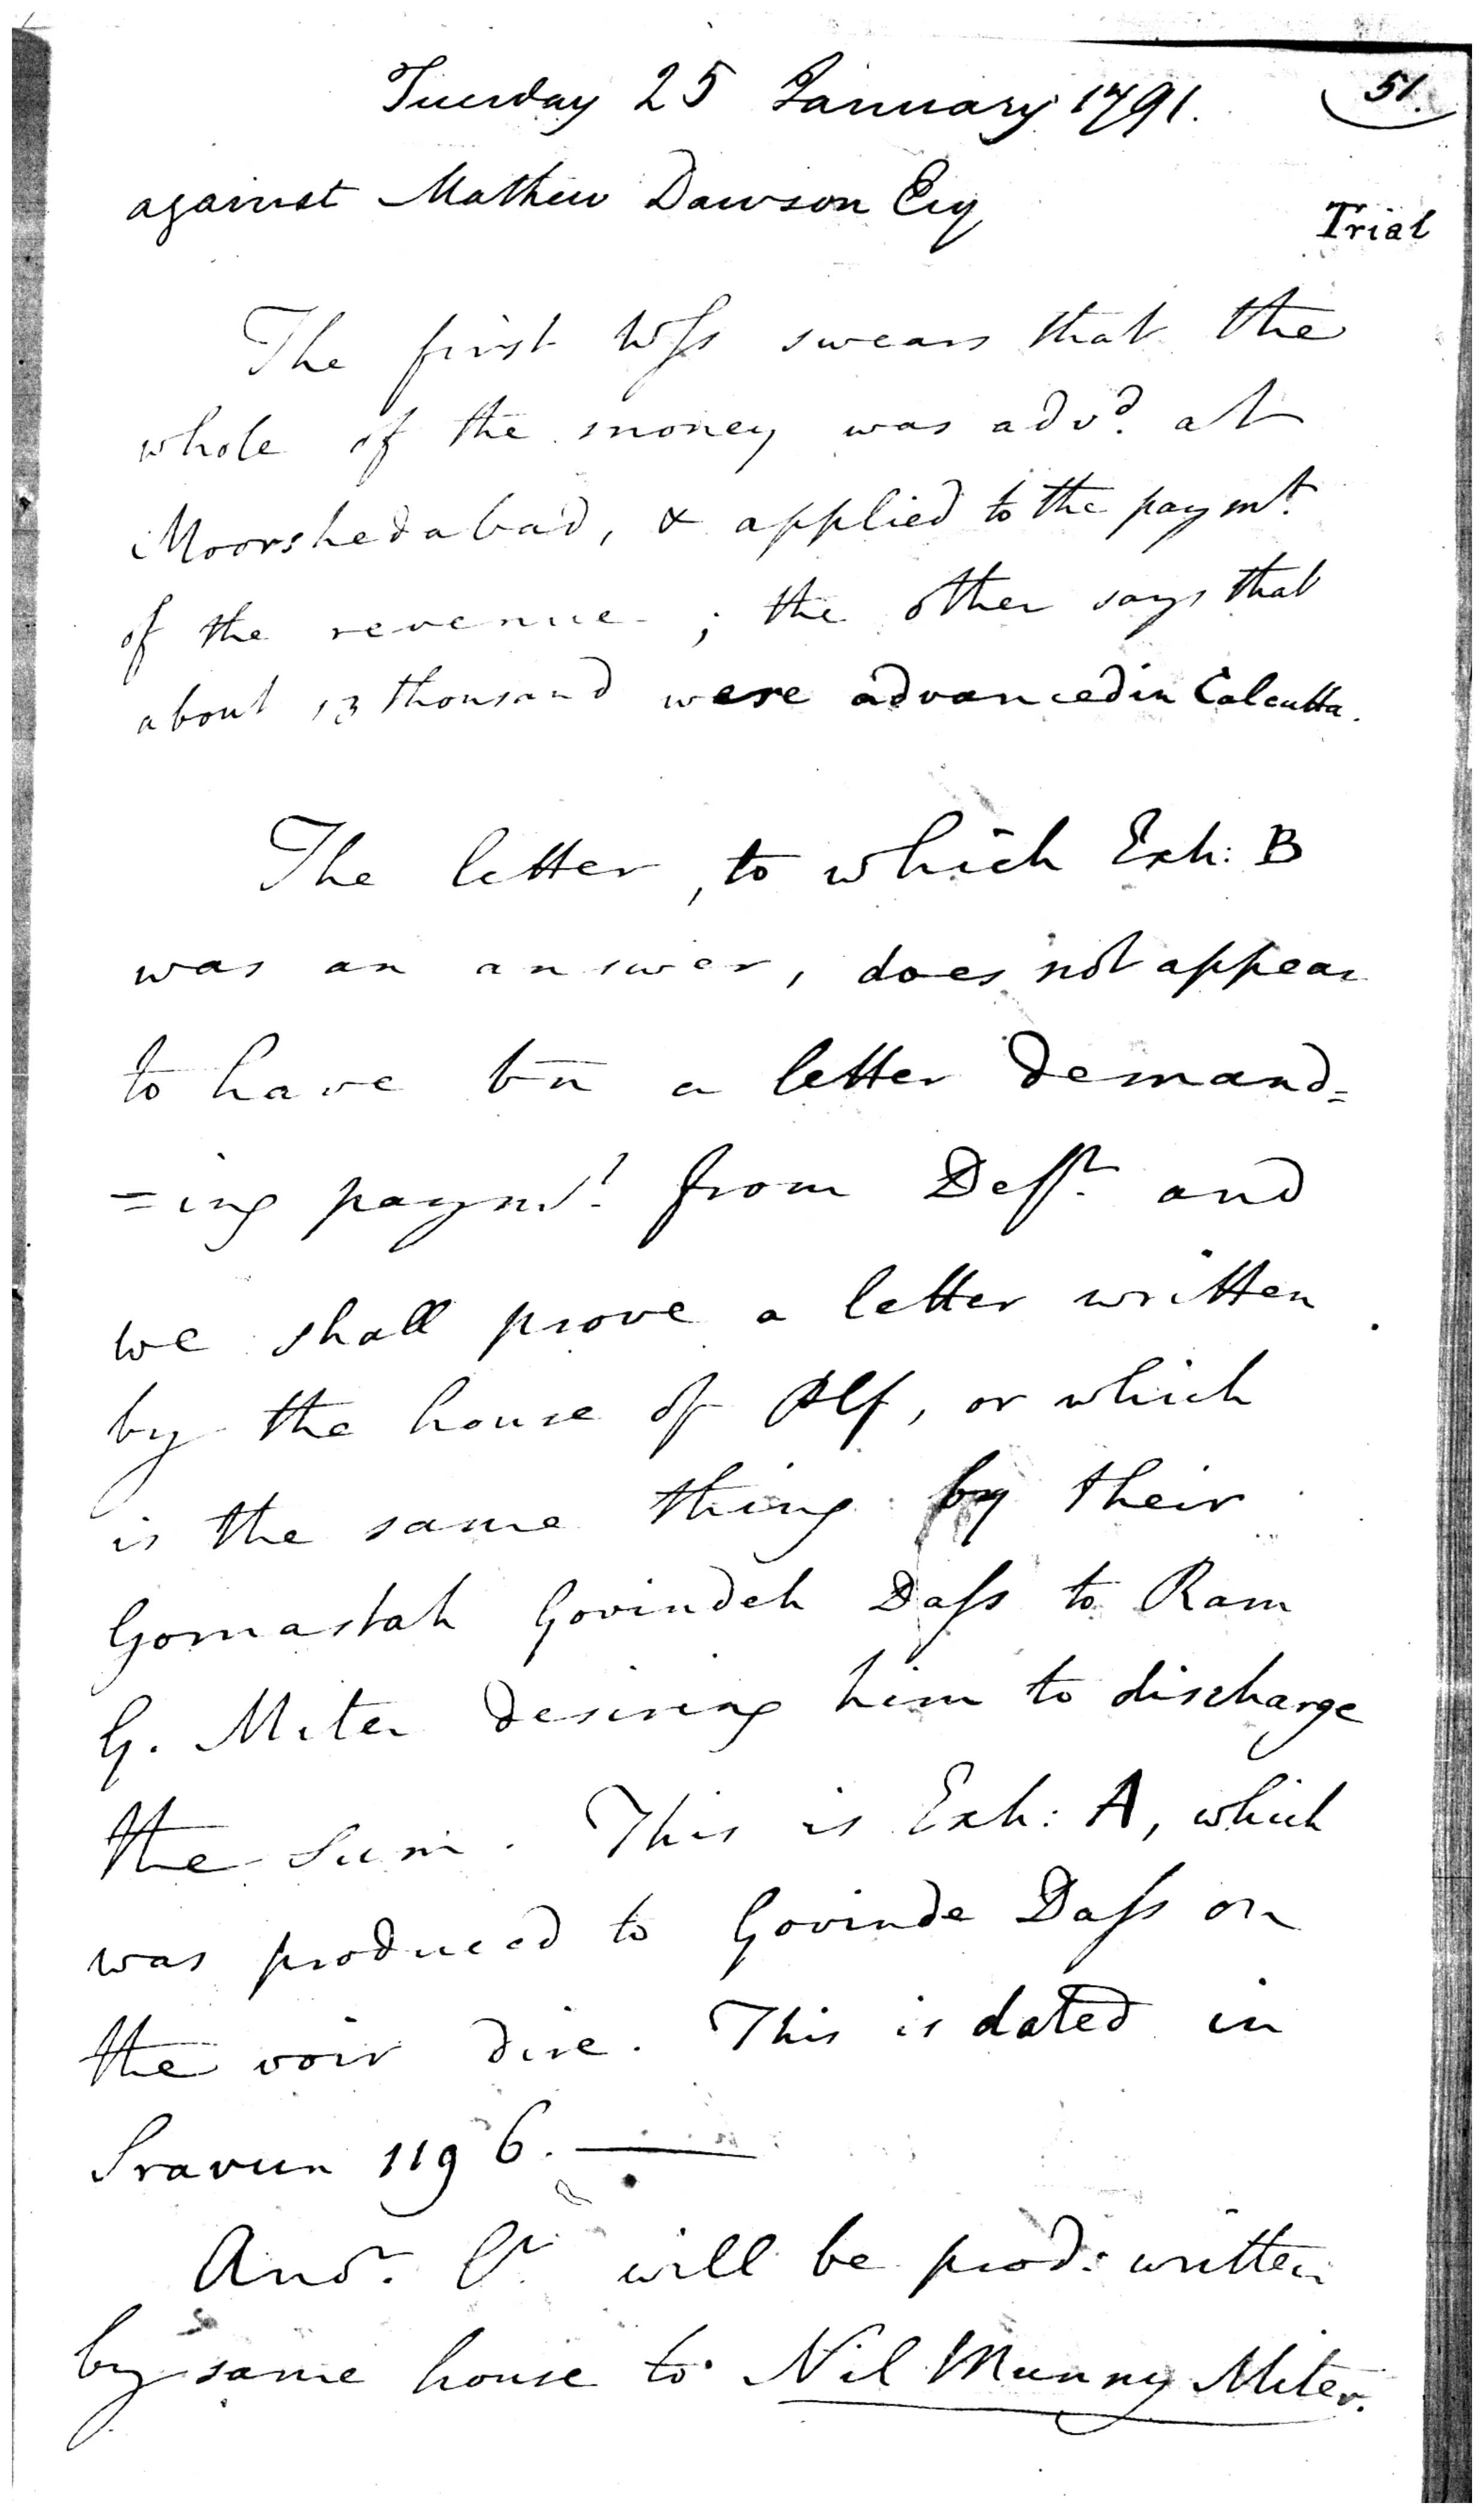 Tuesday 25 January 1791. 51.
against Mathew Dawson Esq Trial
The first Wſs swears that the
whole of the money was advd. at
Moorshedabad, & applied to the paymt.
of the revenue; the other says that
about 13 thousand were advanced in Calcutta.
The letter, to which Exh: B
was an answer, does not appear
to have bn a letter demand=
=ing paymt. from Deft. and
we shall prove a letter written
by the house of Plf, or which
is the same thing by their
Gomastah Govindeh Daſs to Ram
G. Miter desiring him to discharge
the Sum. This is Exh: A, which
was produced to Govinde Daſs on
the voir dire. This is dated in
Sravun 1196. —
Anor. lr. will be prod: written
by same house to Nil Munny Miter.